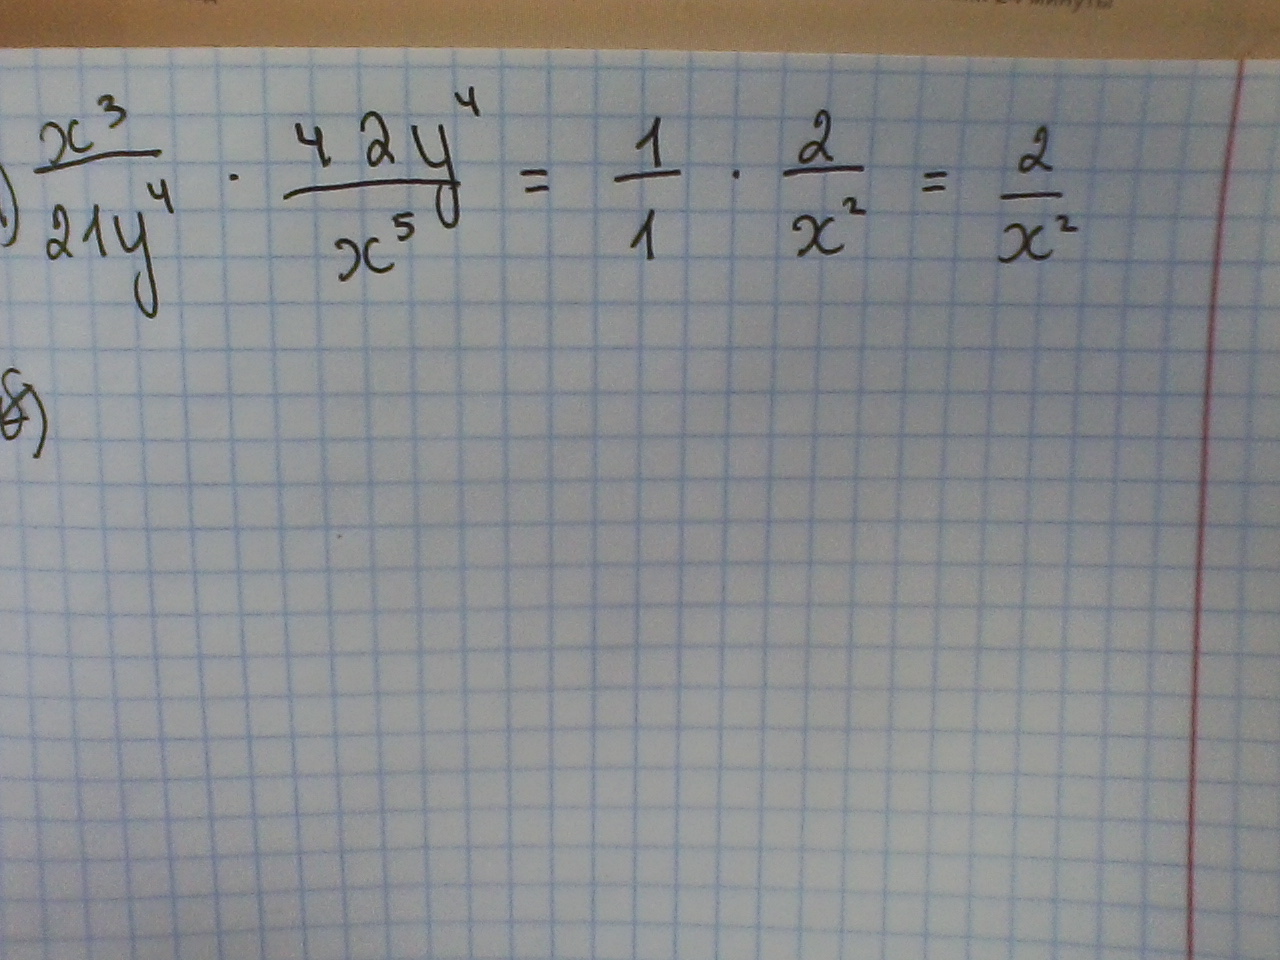 ) x³/21y⁴ · 42y⁴/x⁵ = 1/1 · 2/x² = 2/x²
)